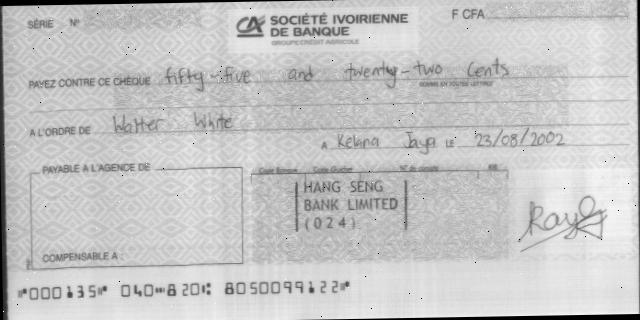 SÉRIE N°
CA SOCIÉTÉ IVOIRIENNE
DE BANQUE
GROUPE CRÉDIT AGRICOLE
F CFA
PAYEZ CONTRE CE CHÈQUE fifty-five and twenty-two Cents
SOMME EN TOUTES LETTRES
A L'ORDRE DE Walter White
A Kelana Jaya LE 23/08/2002
PAYABLE A L'AGENCE DE
Code Banque Code Guichet N° de compte RIB
HANG SENG
BANK LIMITED
(024)
COMPENSABLE A :
⑈000135⑈ 040⑉820⑆ 8050099122⑈